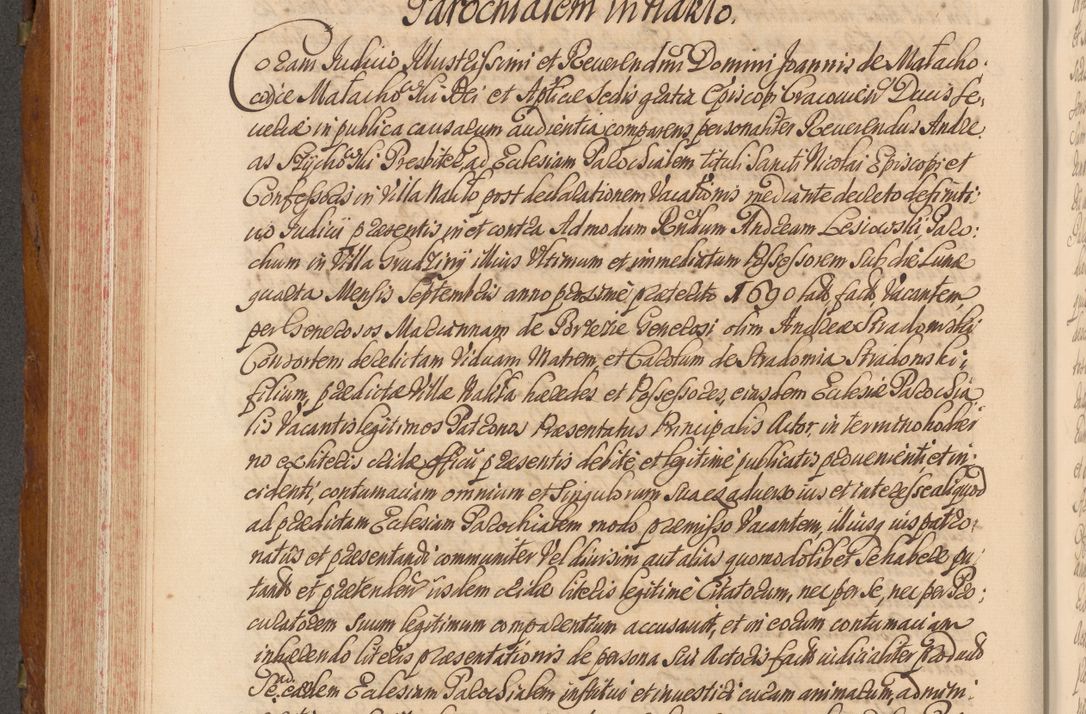 Parochialem in Hakło.
Coram Judicio Illustrissimi et Reverendmi Domini Joannis de Małacho-
wice Małachowski Dei et Aplicae Sedis gratia Episcopi Cracovien Ducis Se-
veriae in publica causarum audientia comparens personaliter Reverendus Andre-
as Strychowski Presbiter, ad Eclesiam Parochialem tituli Sancti Nicolai Episcopi et
Confessoris in Villa Nakło post declarationem Vacationis mediante decreto definiti-
vo Judicii praesentis in et contra Admodum Rndum Andream Lesiowski Paro-
chum in Villa Grudziny illius Ultimum et immediatum Possessorem Sub die Lunae
quarta Mensis Septembris anno proxime praeterito 1690 lat, fact, Vacantem
per Generosos Mariannam de Generosi olim Andreae Stradomski
Consortem derelictam Viduam Matrem, et Carolum de Stradomia Stradomski
filium, praedictae Villae Nakła haeredes et Possessores, eiusdem Eclesiae Parochia-
lis Vacantis legitimos Patronos Praesentatus Principalis Actor, in termino hodier-
no ex literis cridae officii praesentis debite et legitime publicatis provenienti et in-
cidenti, contumaciam omnium et Singulorum Sua ex adverso ius et interesse aliquod
ad praedictam Eclesiam Parochialem modo praemisso Vacantem, illiusq ius patro-
natus et praesentandi communiter Vel divisim aut alias quomodolibet Se habere pu-
tant et praetenden iisdem cridae literis legitime Citatorum, nec per se, nec per Pro-
curatorem Suum legitimum comparentium accusavit, et in eorum contumaciam
inhaerendo literis praesentationis de persona Sui Actoris fact iudicialiter product
Se, ad eandem Eclesiam Parochialem institui et investiri curam animarum, ad mini-